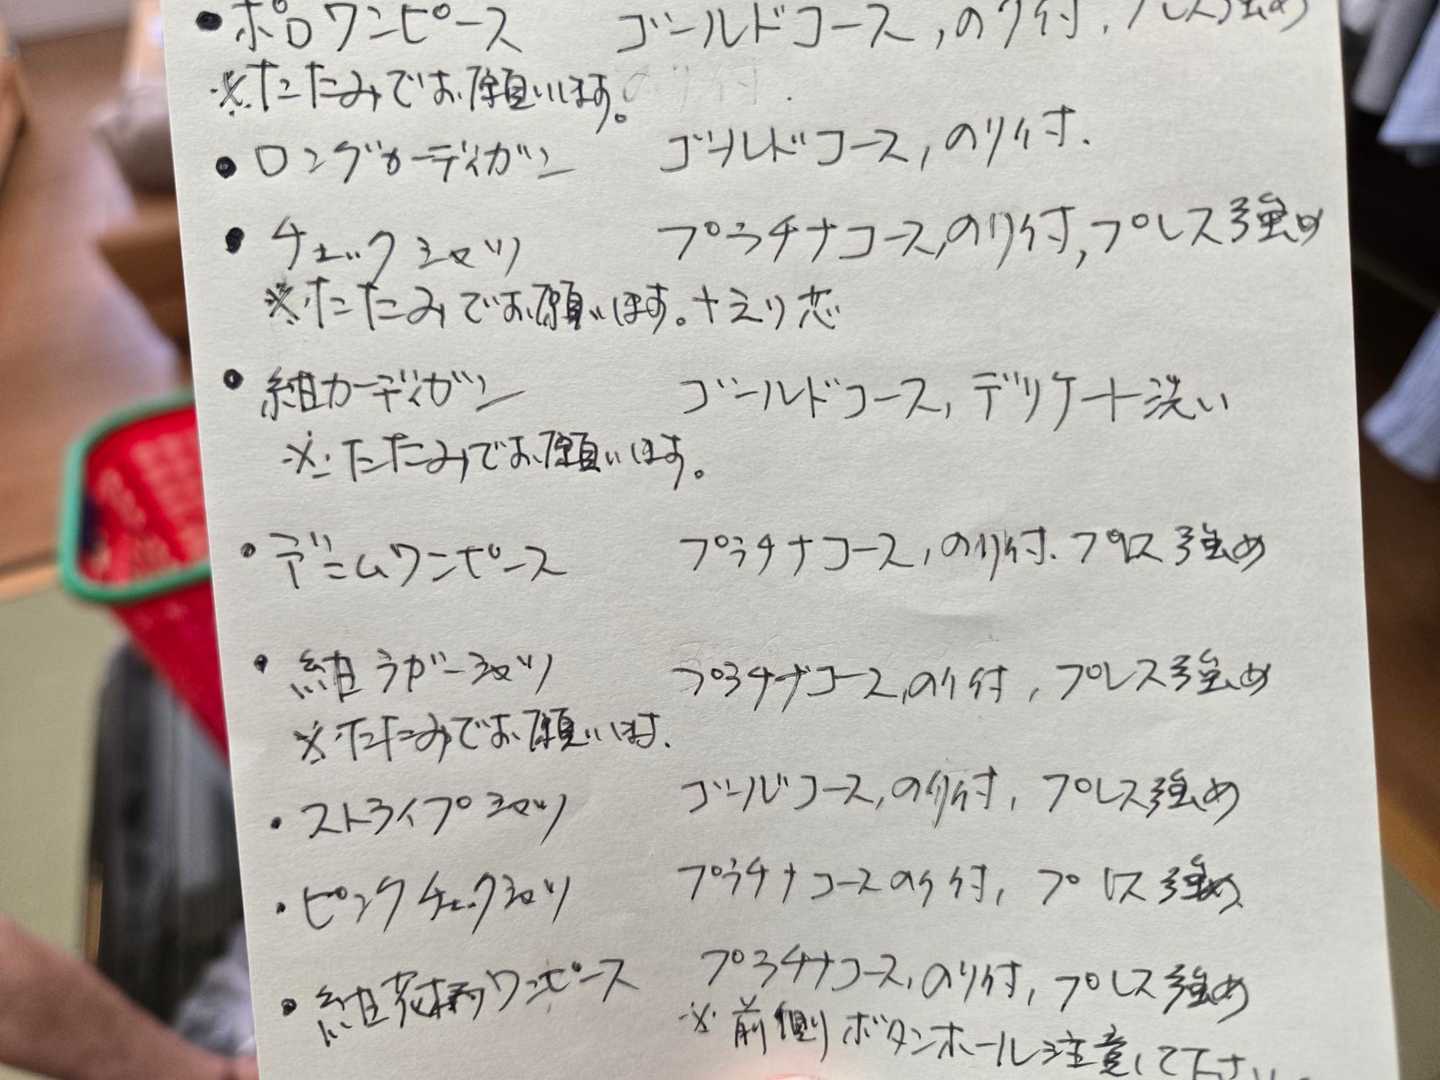 • ポロワンピース ゴールドコース,のり付,プレス強め
※たたみでお願いします。のり付.
• ロングカーディガン ゴールドコース,のり付.
• チェックシャツ プラチナコース,のり付,プレス強め
※たたみでお願いします。+えり芯
• 紺カーディガン ゴールドコース,デリケート洗い
※たたみでお願いします。
• デニムワンピース プラチナコース,のり付.プレス強め
• 紺ラガーシャツ プラチナコース,のり付,プレス強め
※たたみでお願いします.
• ストライプシャツ ゴールドコース,のり付,プレス強め
• ピンクチェックシャツ プラチナコースのり付,プレス強め
• 紺花柄ワンピース プラチナコース,のり付,プレス強め
※前側ボタンホール注意して下さい